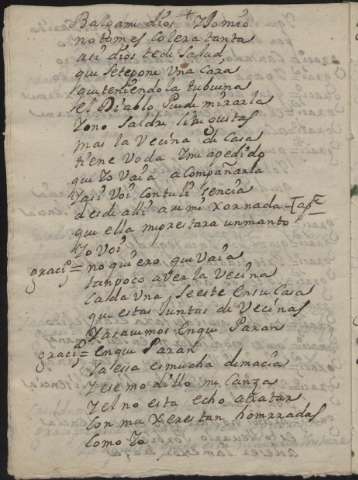 Balgame dios tio mio
no tomes colera tanta
asi dios te de salud
que se te pone una cara
que teniendola tu buena
el Diablo puede mirarla
yo no saldre si tu gustas
mas la vecina de casa
tiene voda y me a pedido
que vaia a acompañarla
y asi voi con tu licencia
desde alli a mi xornada
que ella me prestara un manto
yo voi
graciº = no quiero que vaia
tanpoco a ver la vecina
calda una se este en su casa
que estas juntas de vecinas
ya savemos en que paran
graciº = en que paran
ya esa es mucha demacia
y ese modillo me cansa
y el no esta echo a tratar
con muxeres tan honrradas
como yo